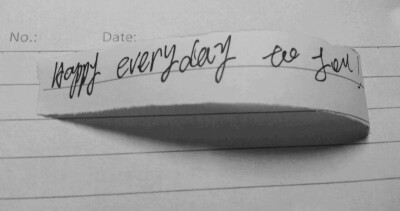 No.: Date:
Happy everyday to you!